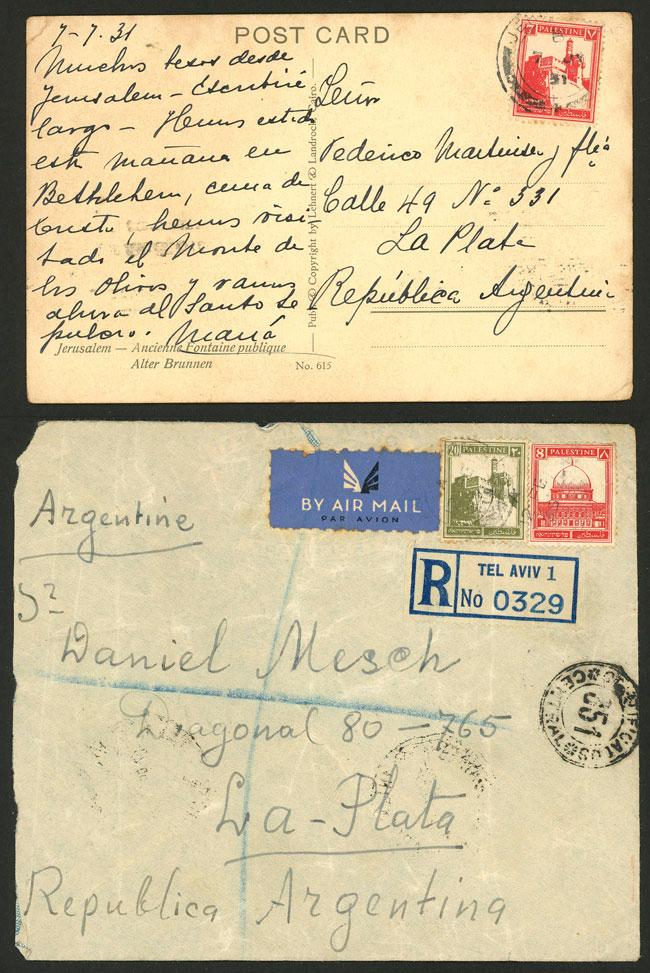 7-7.31
POST CARD
Muchos besos desde
Jerusalem - Escribiré
largo - Hemos estado
esta mañana en
Bethlehem, cuna de
Cristo hemos visi-
tado el Monte de
los Olivos y vamos
ahora al Santo Se
pulcro. María
Señor
Federico Martinez y flia
Calle 49 Nº 531
La Plata
República Argentina
Publ. & Copyright by Lehnert & Landrock, Cairo.
Jerusalem — Ancienne Fontaine publique
Alter Brunnen
No. 615
7 PALESTINE ٧
فلسطين
BY AIR MAIL
PAR AVION
20 PALESTINE ٢٠
فلسطين
8 PALESTINE ٨
فلسطين
R TEL AVIV 1
No 0329
Argentine
Sr
Daniel Mesch
Diagonal 80-765
La-Plata
Republica Argentina
351